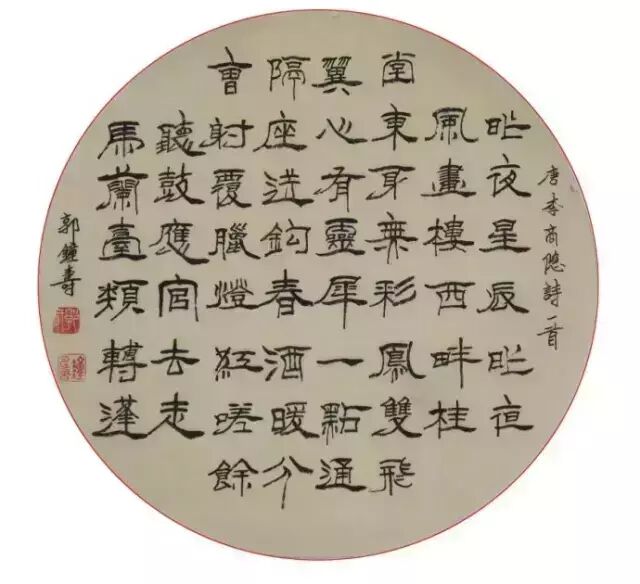 唐李商隱詩一首
昨夜星辰昨夜
風畫樓西畔桂
堂東身無彩鳳雙飛
翼心有靈犀一點通
隔座送鈎春酒暖分
曹射覆臘燈紅嗟餘
聽鼓應官去走
馬蘭臺類轉蓬
郭鐘壽